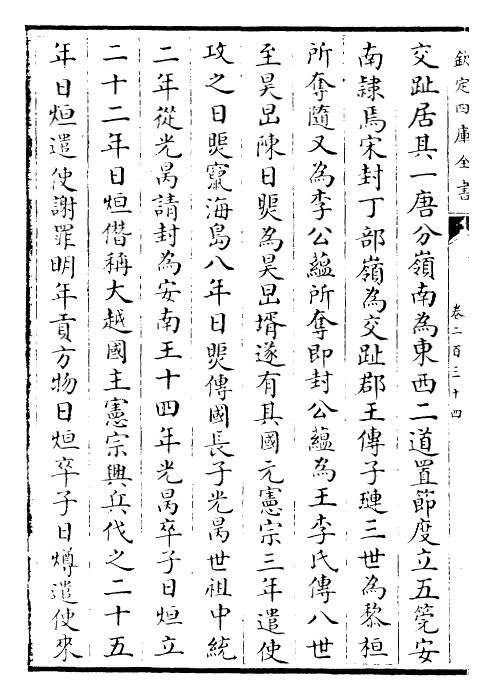 欽定四庫全書
卷二百三十四
交趾居其一唐分嶺南為東西二道置節度立五筦安
南隸焉宋封丁部嶺為交趾郡王傳子璉三世為黎桓
所奪隨又為李公蘊所奪即封公蘊為王李氏傳八世
至昊旵陳日煚為昊旵壻遂有其國元憲宗三年遣使
攻之日煚竄海島八年日煚傳國長子光昺世祖中統
二年從光昺請封為安南王十四年光昺卒子日烜立
二十二年日烜僭稱大越國主憲宗興兵伐之二十五
年日烜遣使謝罪明年貢方物日烜卒子日燇遣使來